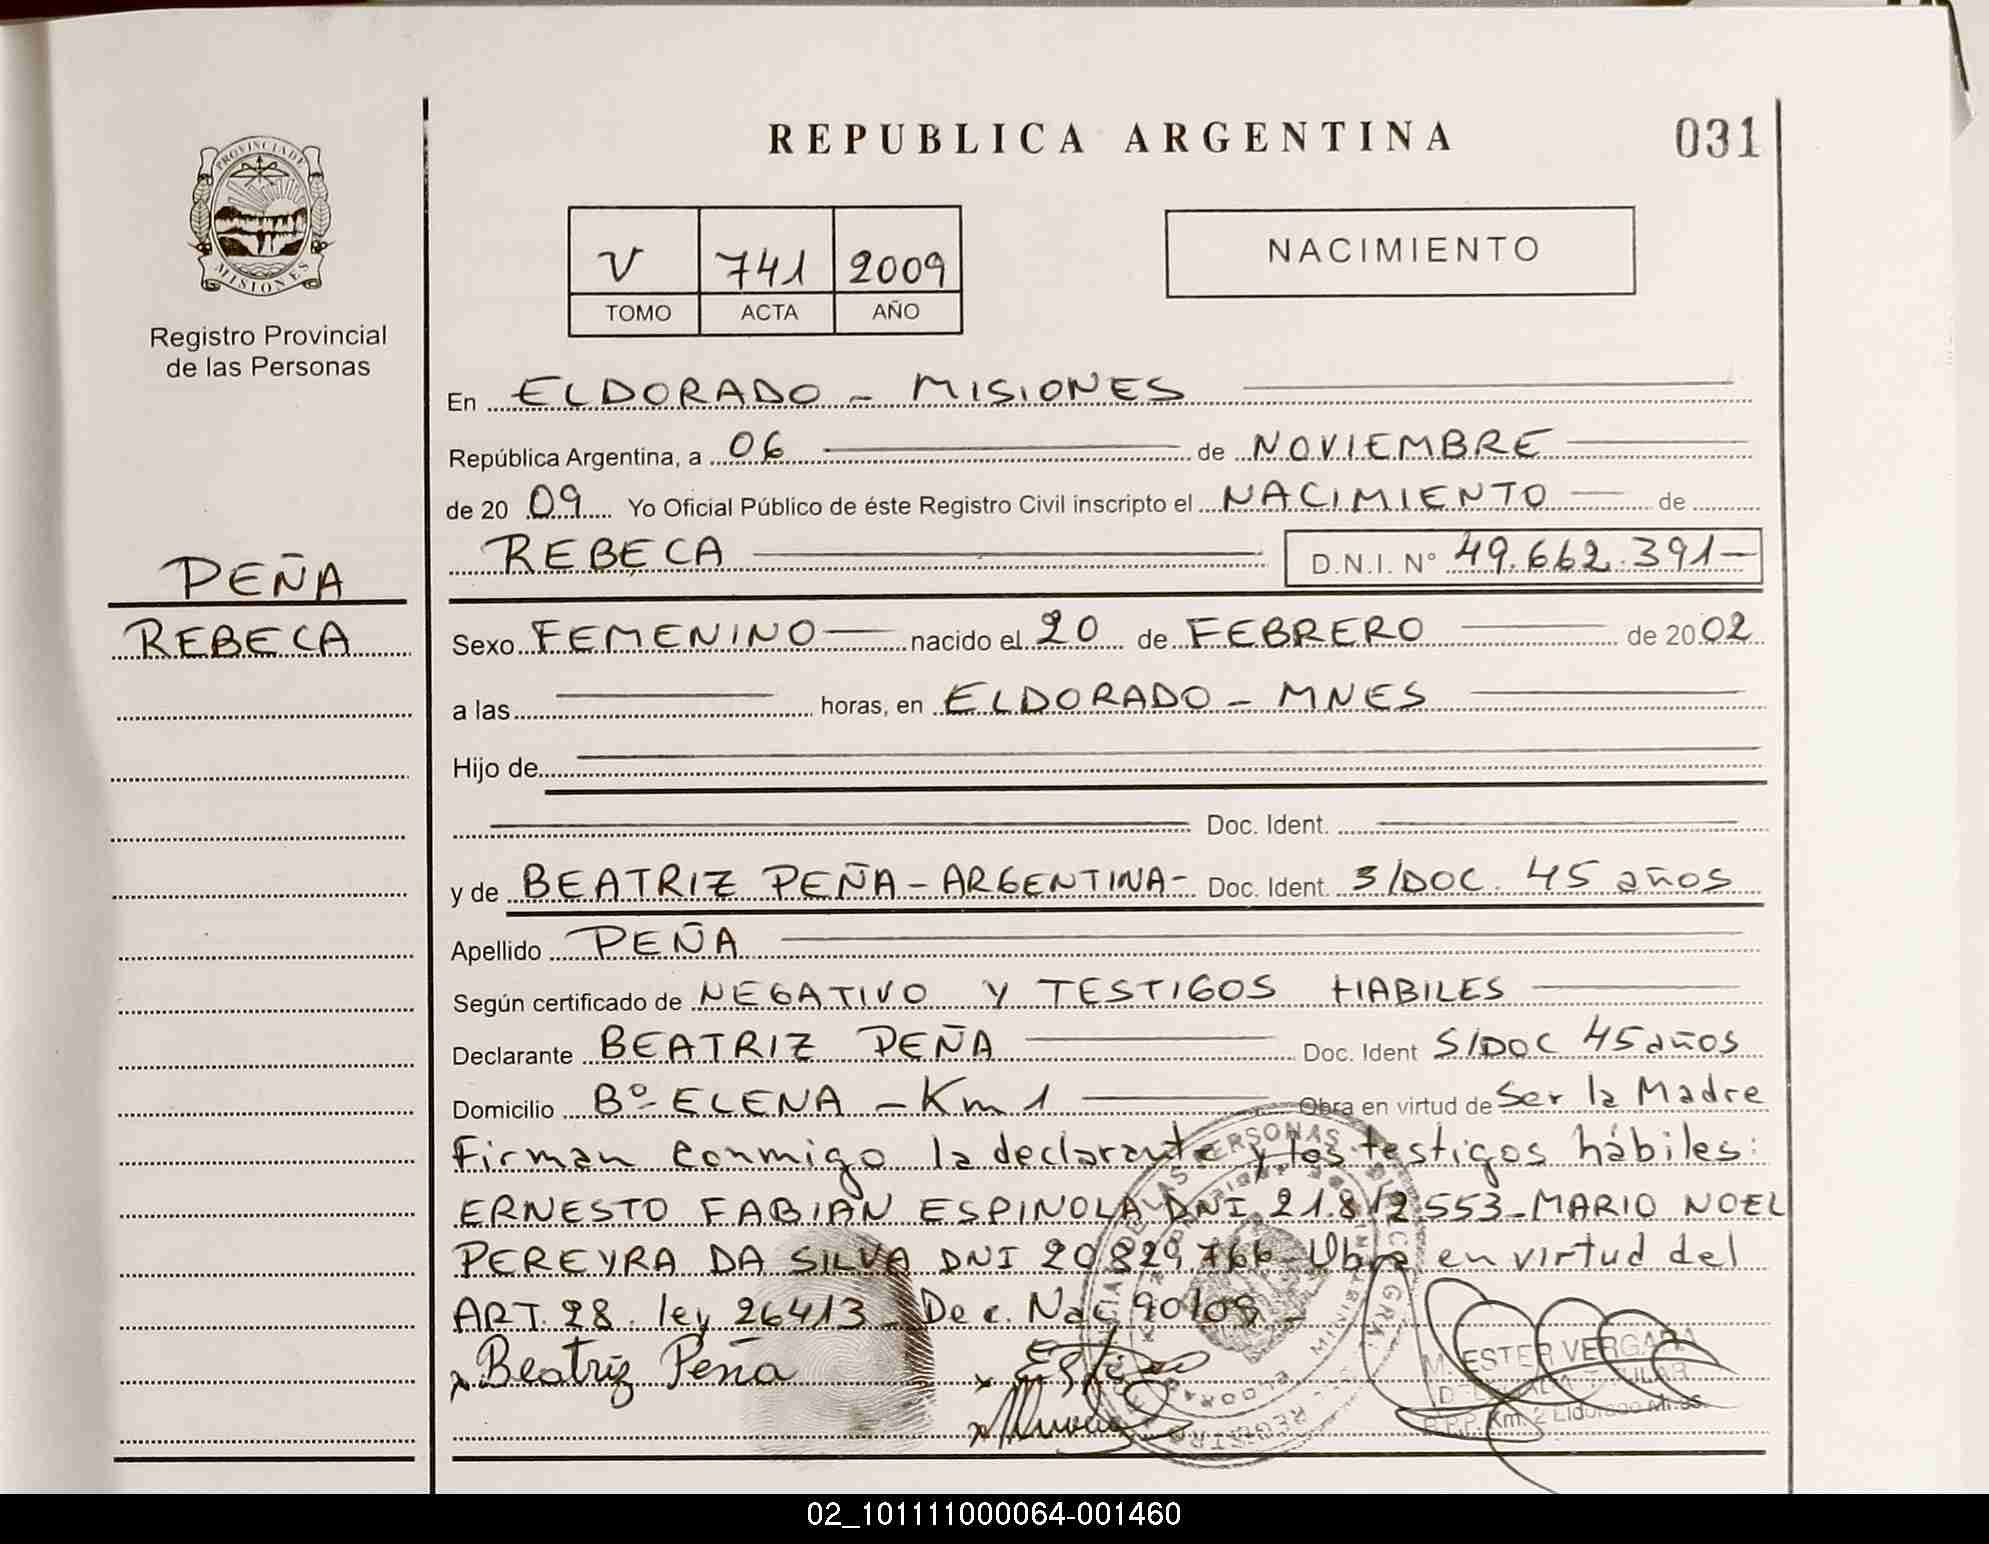 REPUBLICA ARGENTINA
031
PROVINCIA DE
MISIONES
Registro Provincial
de las Personas
V 741 2009
TOMO ACTA AÑO
NACIMIENTO
En ELDORADO - MISIONES
República Argentina, a 06 de NOVIEMBRE
de 20 09 Yo Oficial Público de éste Registro Civil inscripto el NACIMIENTO de
REBECA D.N.I. N° 49.662.391-
PEÑA
REBECA
Sexo FEMENINO nacido el 20 de FEBRERO de 2002
a las horas, en ELDORADO - MNES
Hijo de
Doc. Ident.
y de BEATRIZ PEÑA - ARGENTINA - Doc. Ident. S/DOC. 45 años
Apellido PEÑA
Según certificado de NEGATIVO Y TESTIGOS HABILES
Declarante BEATRIZ PEÑA Doc. Ident S/DOC 45 años
Domicilio Bº ELENA - Km 1 Obra en virtud de Ser la Madre
Firman conmigo la declarante y los testigos hábiles:
ERNESTO FABIAN ESPINOLA DNI 21.812.553 - MARIO NOEL
PEREYRA DA SILVA DNI 20.829.766 Obra en virtud del
ART. 28. ley 26413 - Dec. Nac 90/09 -
x Beatriz Peña
M. ESTER VERGARA
R.P.P. Km. 2 Eldorado Mnes.
02_101111000064-001460